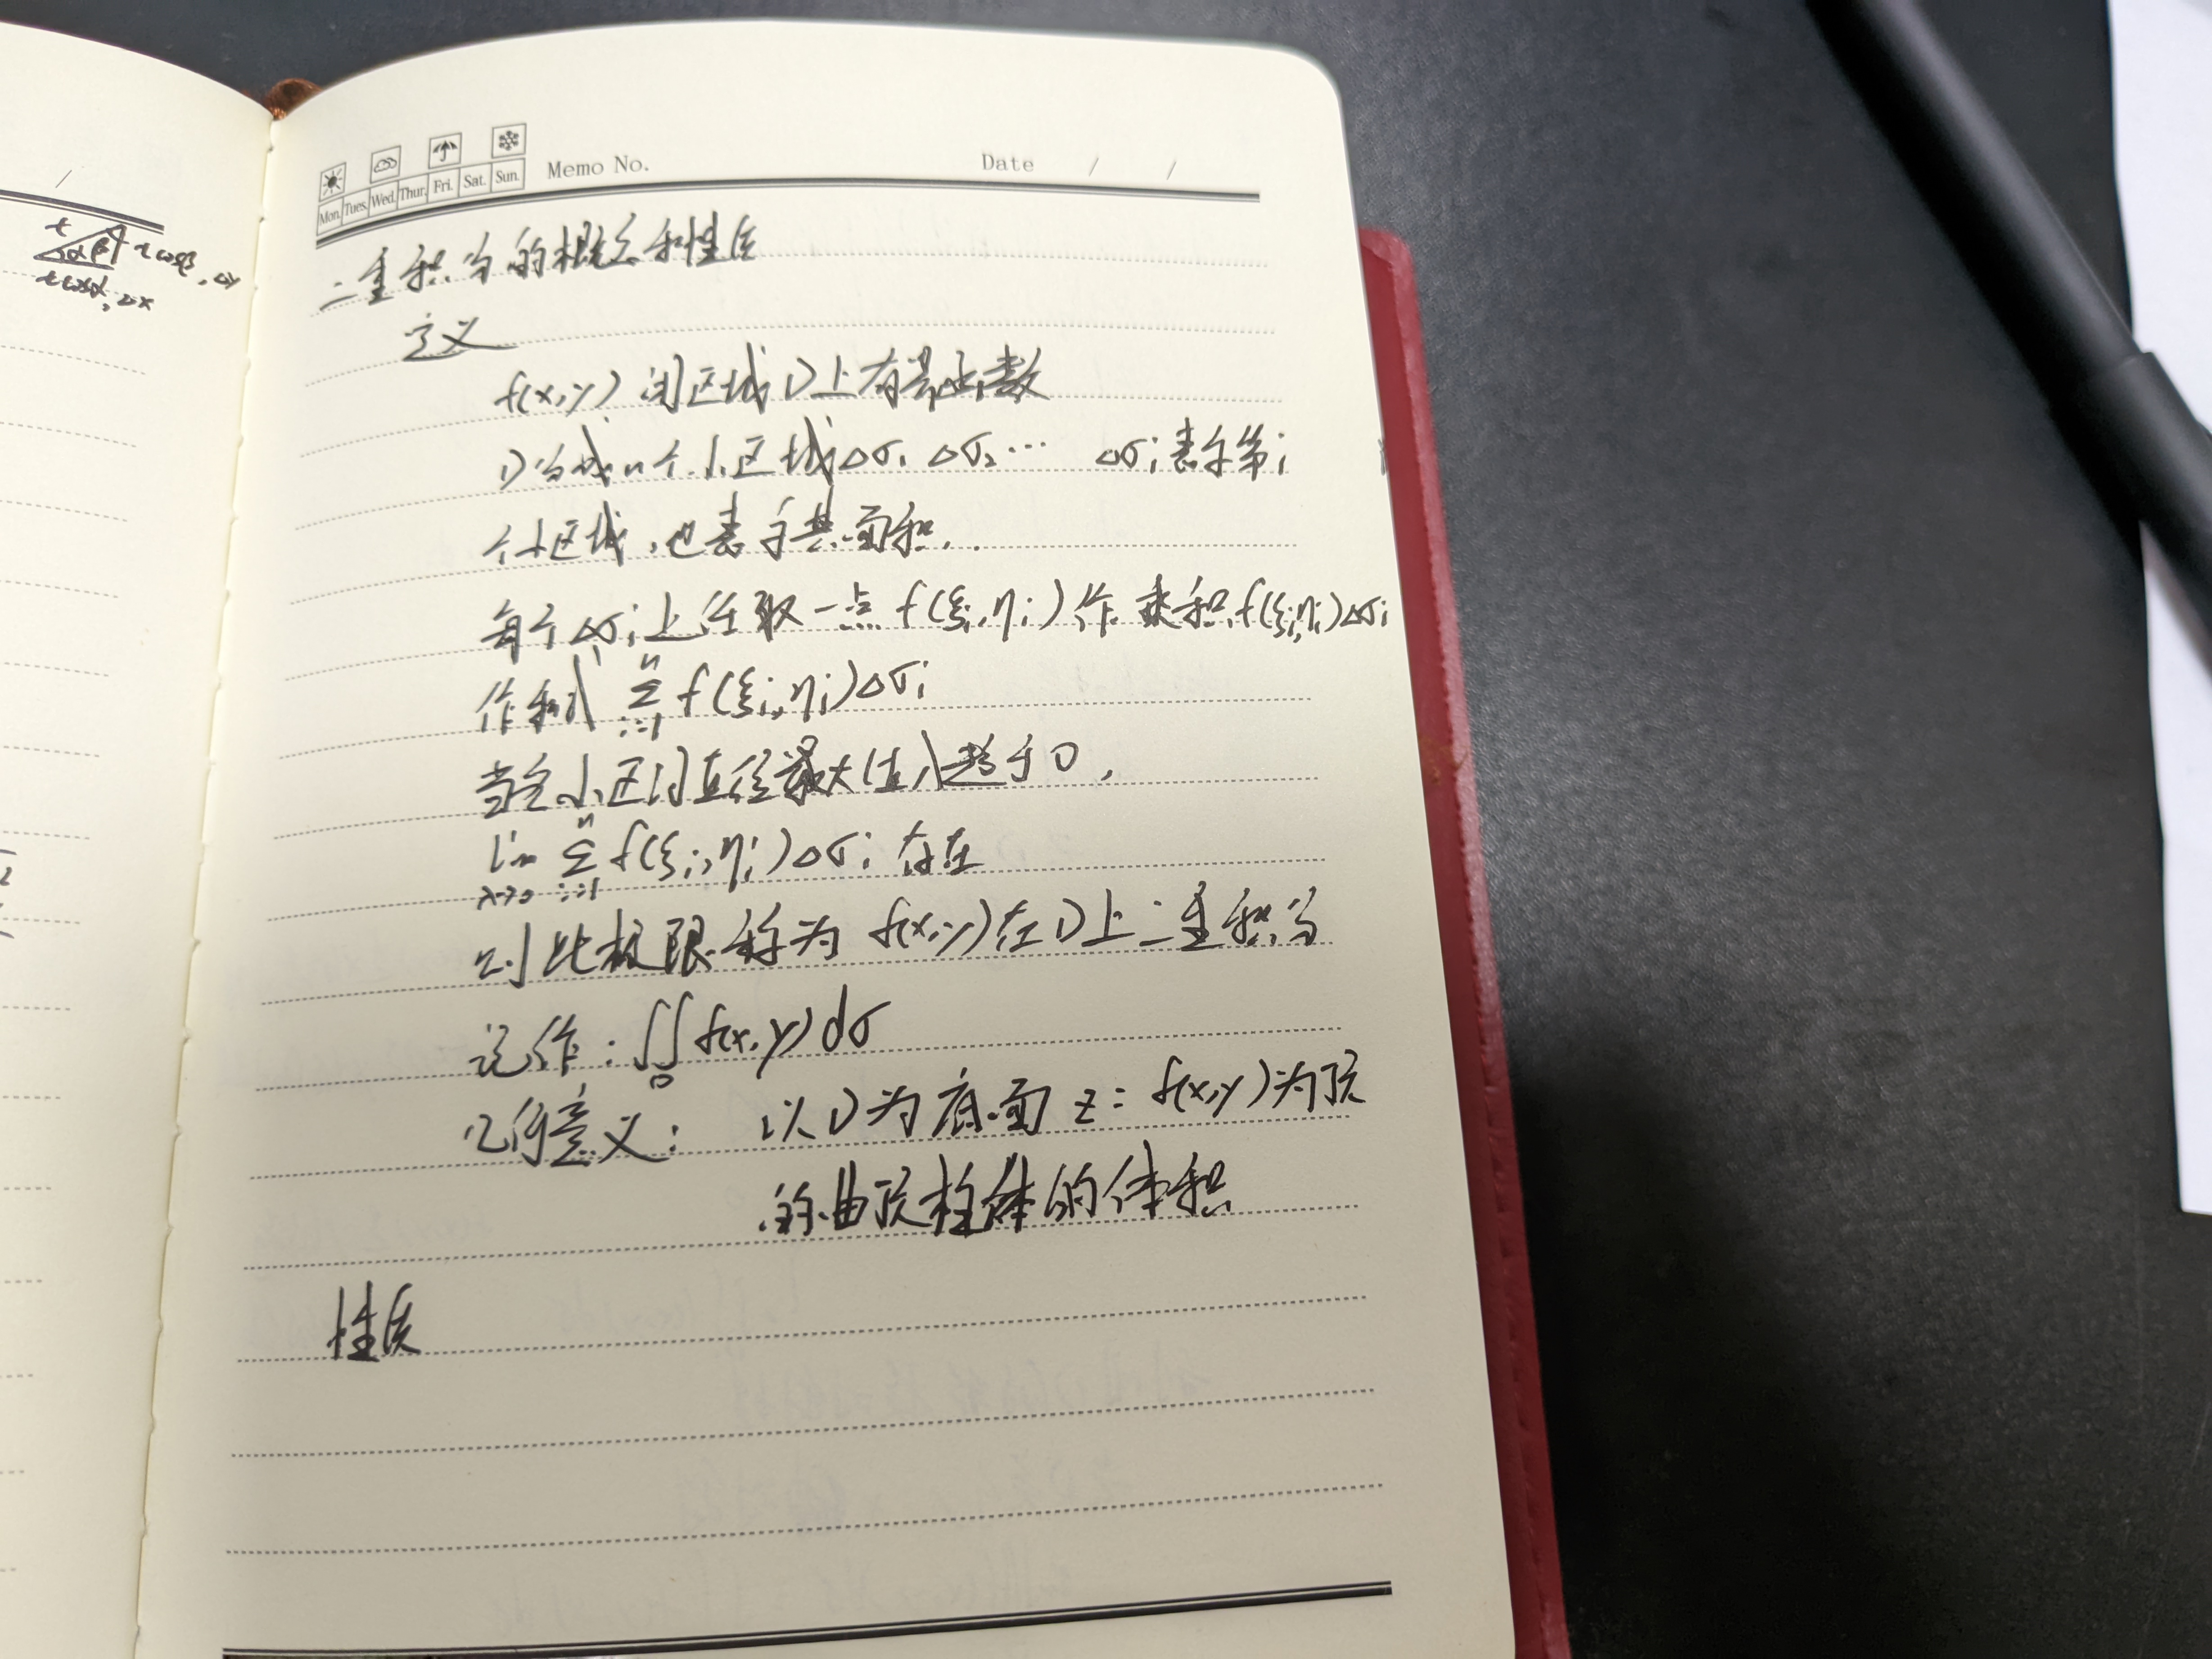 t
α β t cosβ, Δy
t cosα, Δx
Mon. Tues. Wed. Thur. Fri. Sat. Sun. Memo No. Date / /
二重积分的概念和性质
定义
f(x,y) 闭区域D上有界函数
D分成n个小区域Δσ₁ Δσ₂… Δσi表示第i
个小区域,也表示其面积.
每个Δσi上任取一点f(ξi,ηi)作乘积f(ξi,ηi)Δσi
作和式 Σ(i=1→n) f(ξi,ηi)Δσi
当各小区间直径最大值λ趋于0,
lim(λ→0) Σ(i=1→n) f(ξi,ηi)Δσi存在
则此极限称为 f(x,y)在D上二重积分
记作:∬_D f(x,y)dσ
几何意义: 以D为底面 z=f(x,y)为顶
的曲顶柱体的体积
性质